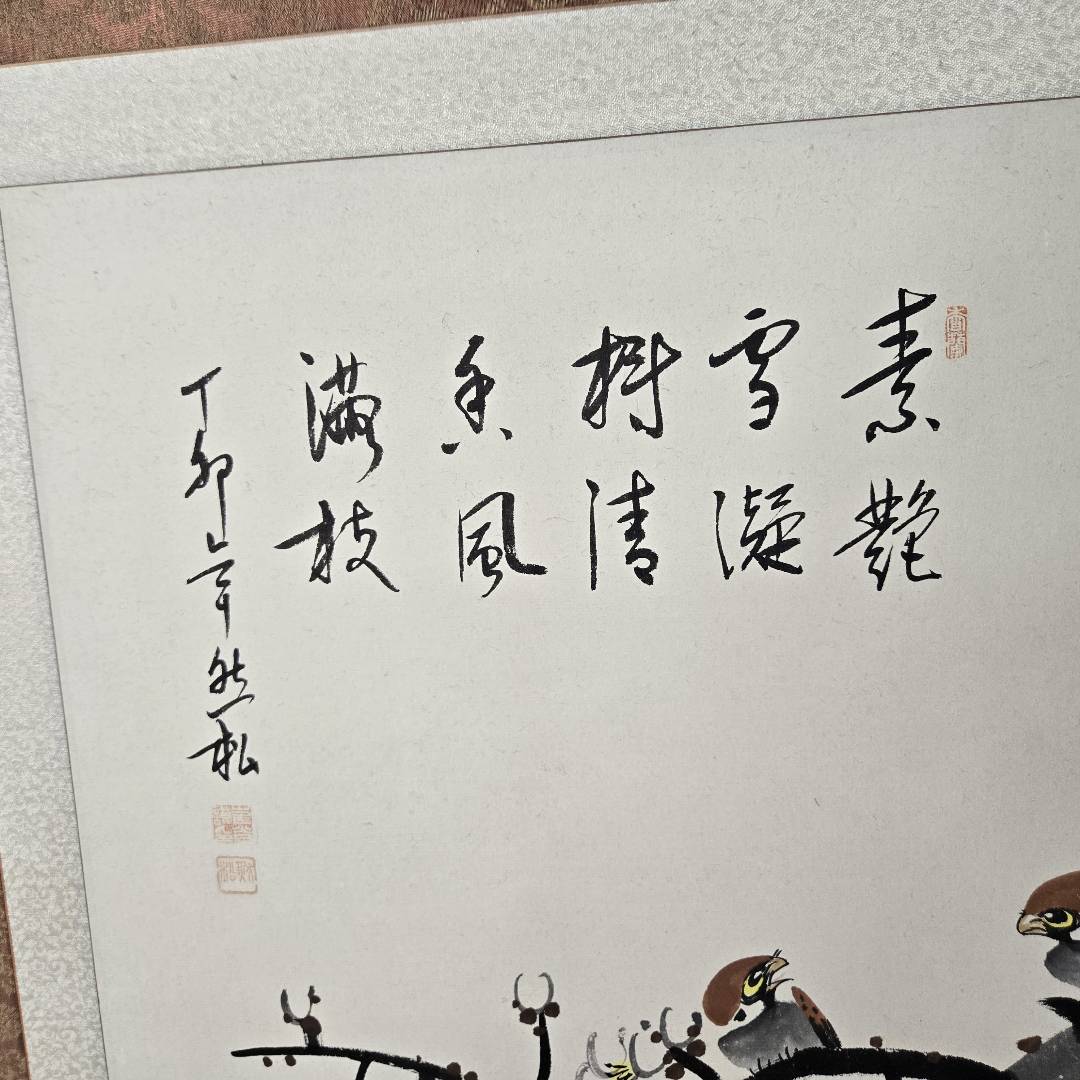 素艷
雪凝
樹清
香風
滿枝
丁卯年然松